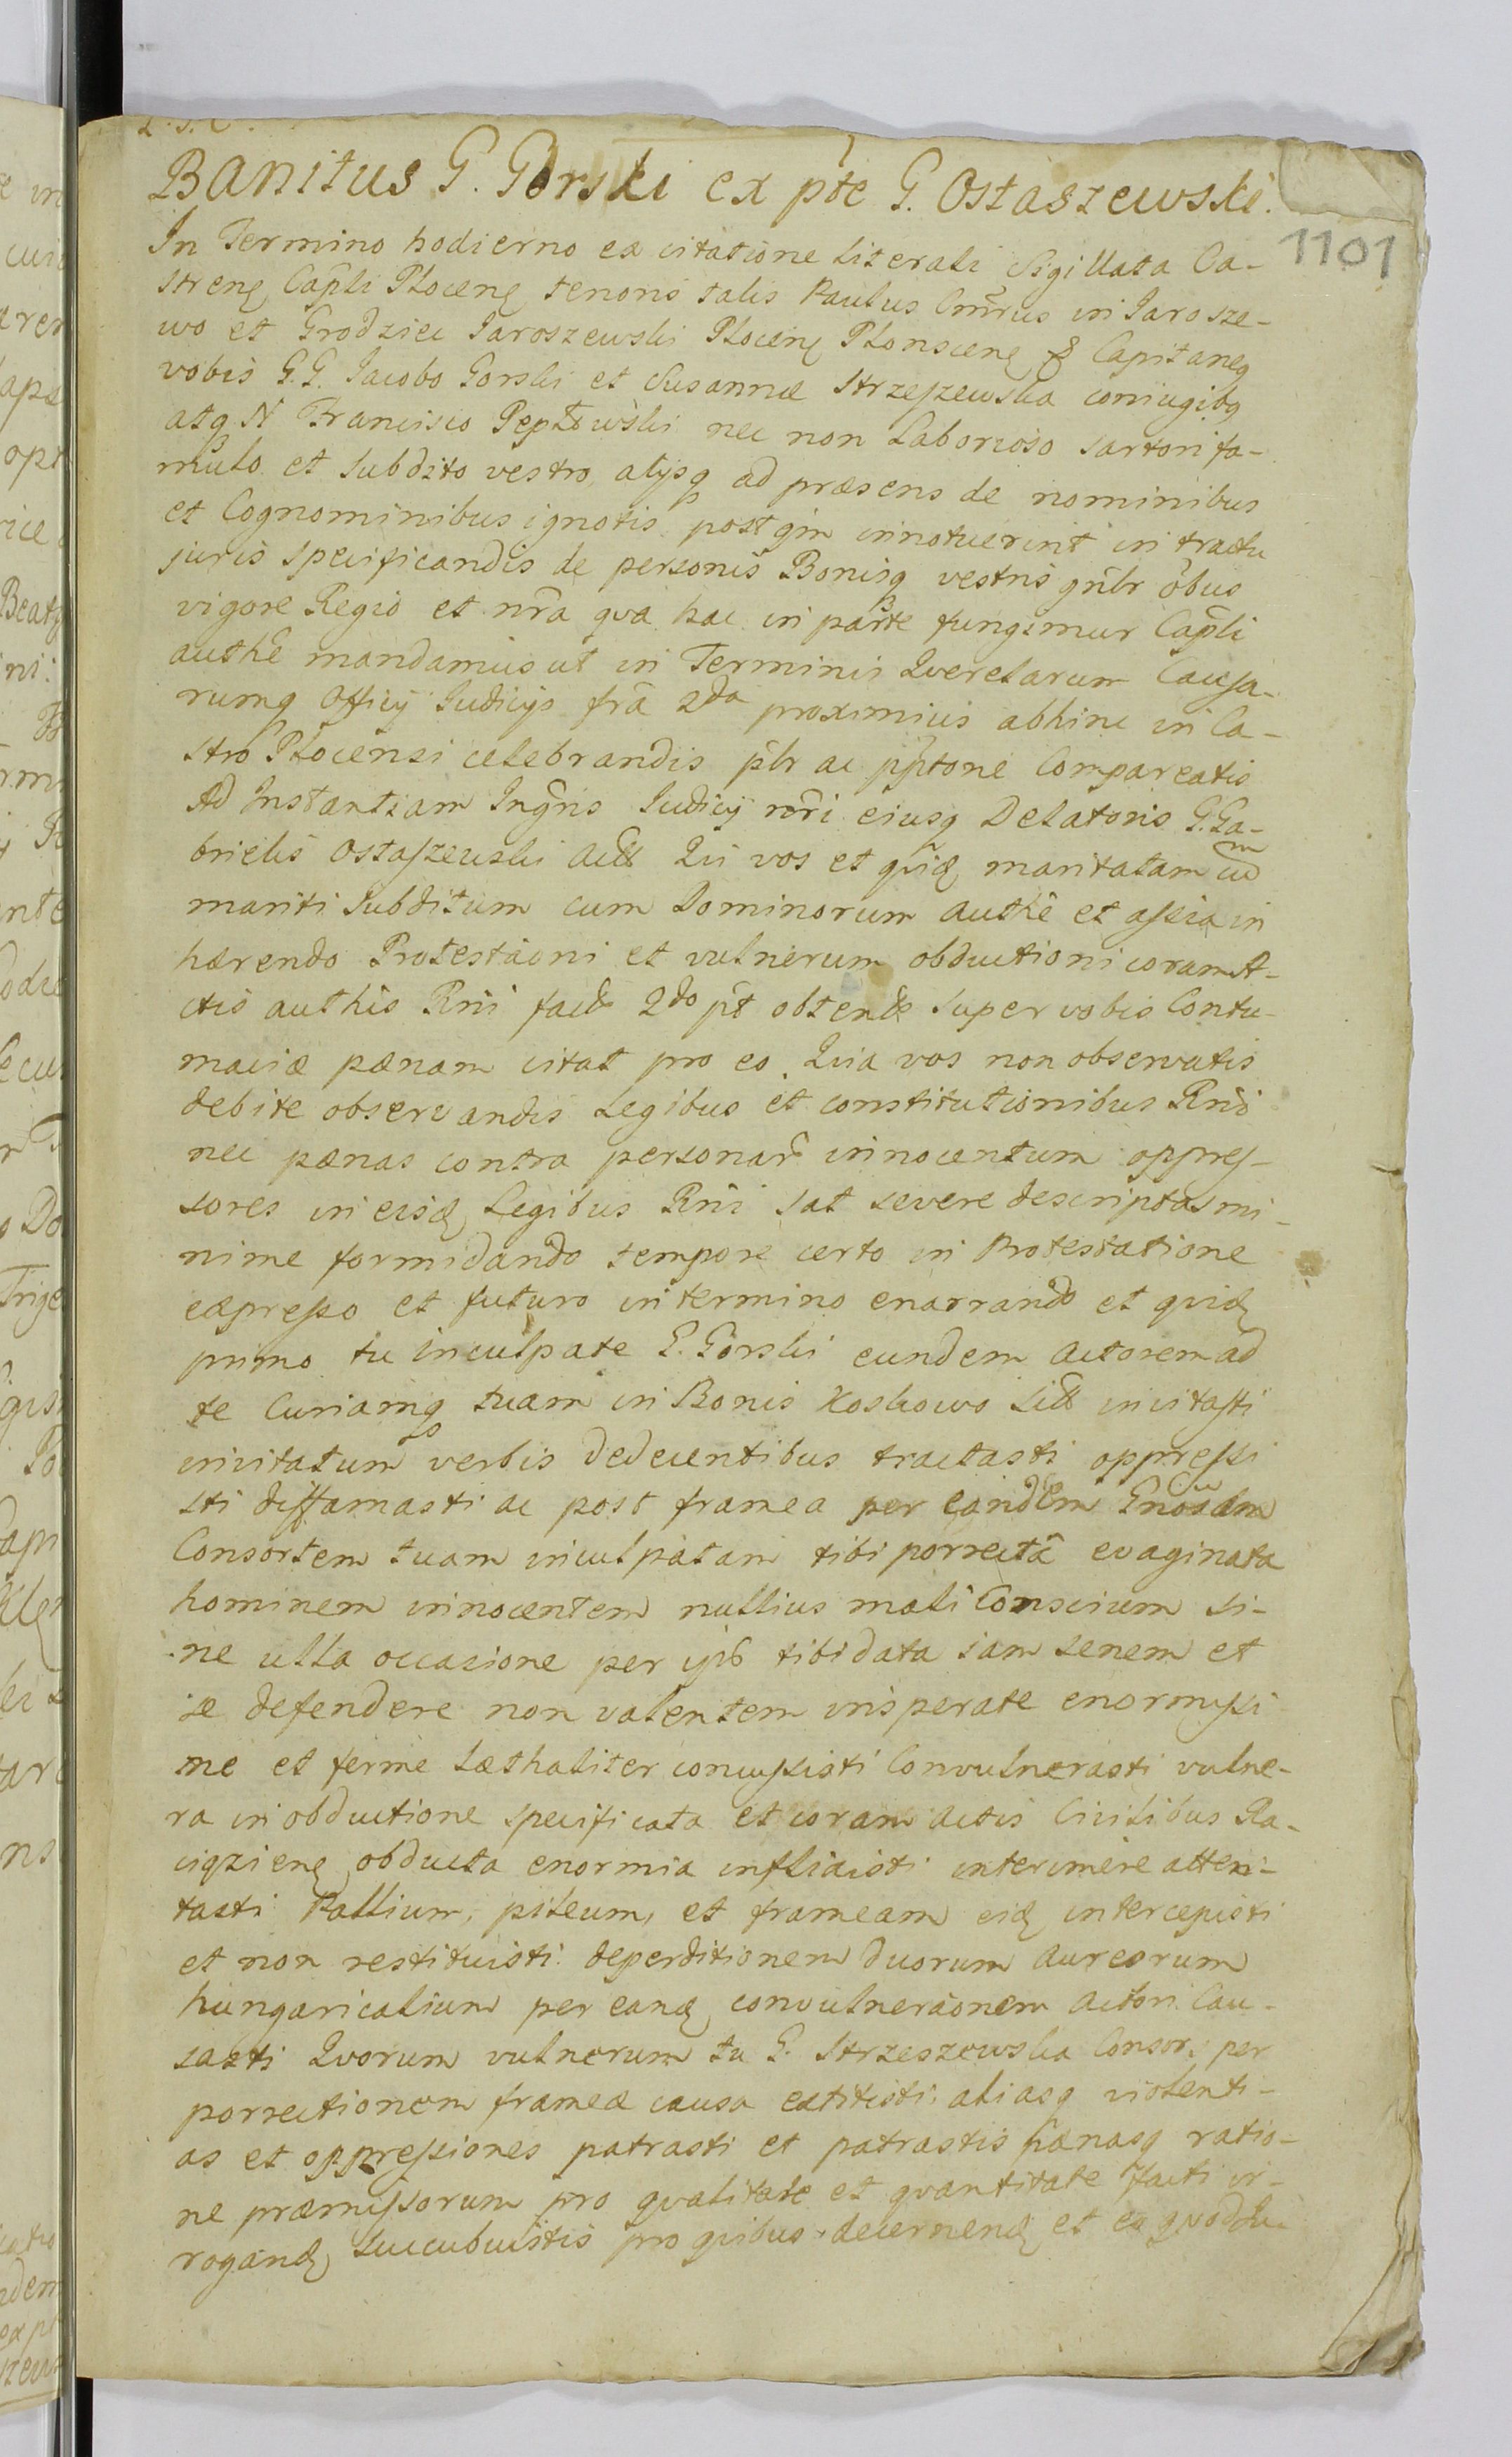 Banitus G. Gorski ex pte G. Ostaszewski.
1101
In Termino hodierno ex citatione literali Sigillata Ca-
stren Capli Plocen tenoris talis Paulus in Jarosze-
wo et Grodziec Jaroszewski Plocen Plonscen & Capitaneq
vobis G.G. Jacobo Gorski et Susannæ Strzeszewska coniugibq
atq N Francisco Peplowski nec non Laborioso sartori fa-
mulo et subdito vestro, alysq ad præsens de nominibus
et Cognominibus ignotis postqm innotuerint in tractu
juris specificandis de personis Bonisq vestris gnlr obus
vigore Regio et nra qva hac in parte fungimur Capli
authe mandamus ut in Terminis Qverelarum Causa-
rumq Officy Judicys fra 2da proximius abhinc in Ca-
stro Plocensi celebrandis plr ac pptorie Compareatis
Ad Instantiam Ingris Judicy nri eiusq Delatoris G. Ga-
brielis Ostaszewski Act Qui vos et qvid maritatam cu
mariti Subditum cum Dominorum authe et assia in
hærendo Protestaoni et vulnerum obductioni coram A-
ctis authis Rni fact 2do pt obtende super vobis Contu-
maciæ pænam citat pro eo. Quia vos non observatis
debite observandis Legibus et constitutionibus Rni
nec pænas contra personar innocentum oppres-
sores in eisd Legibus Rni sat severe descriptas mi-
nime formidando tempore certo in Protestatione
expresso et futuro in termino enarrando et qvid
primo tu inculpate G. Gorski eundem Actorem ad
te Curiamq tuam in Bonis Koskowo sitt invitasti
invitatum verbis dedecentibus tractasti oppressi
sti diffamasti ac post framea per eandem Gnosam
Consortem tuam inculpatam tibi porrecta evaginata
hominem innocentem nullius mali Conscium si-
ne ulla occasione per ips tibi data iam senem et
se defendere non valentem insperate enormissi
me et ferme Læthaliter concussisti Convulnerasti vulne-
ra in obductione specificata et coram Actis Civilibus Ra-
ciqzien obducta enormia inflixisti interimere atten-
tasti Pallium, pileum, et frameam eid intercepisti
et non restituisti deperditionem duorum Aureorum
hungaricalium per eand convulneraonem Actori Cau-
sasti Qvorum vulnerum tu G. Strzeszewska Consors per
porrectionem frameæ causa extitisti, aliasq violenti-
as et oppressiones patrasti et patrastis pænasq ratio-
ne præmissorum pro qvalitate et qvantitate facti ir-
rogand succubuistis pro qvibus decernend et eo qvod Ju-